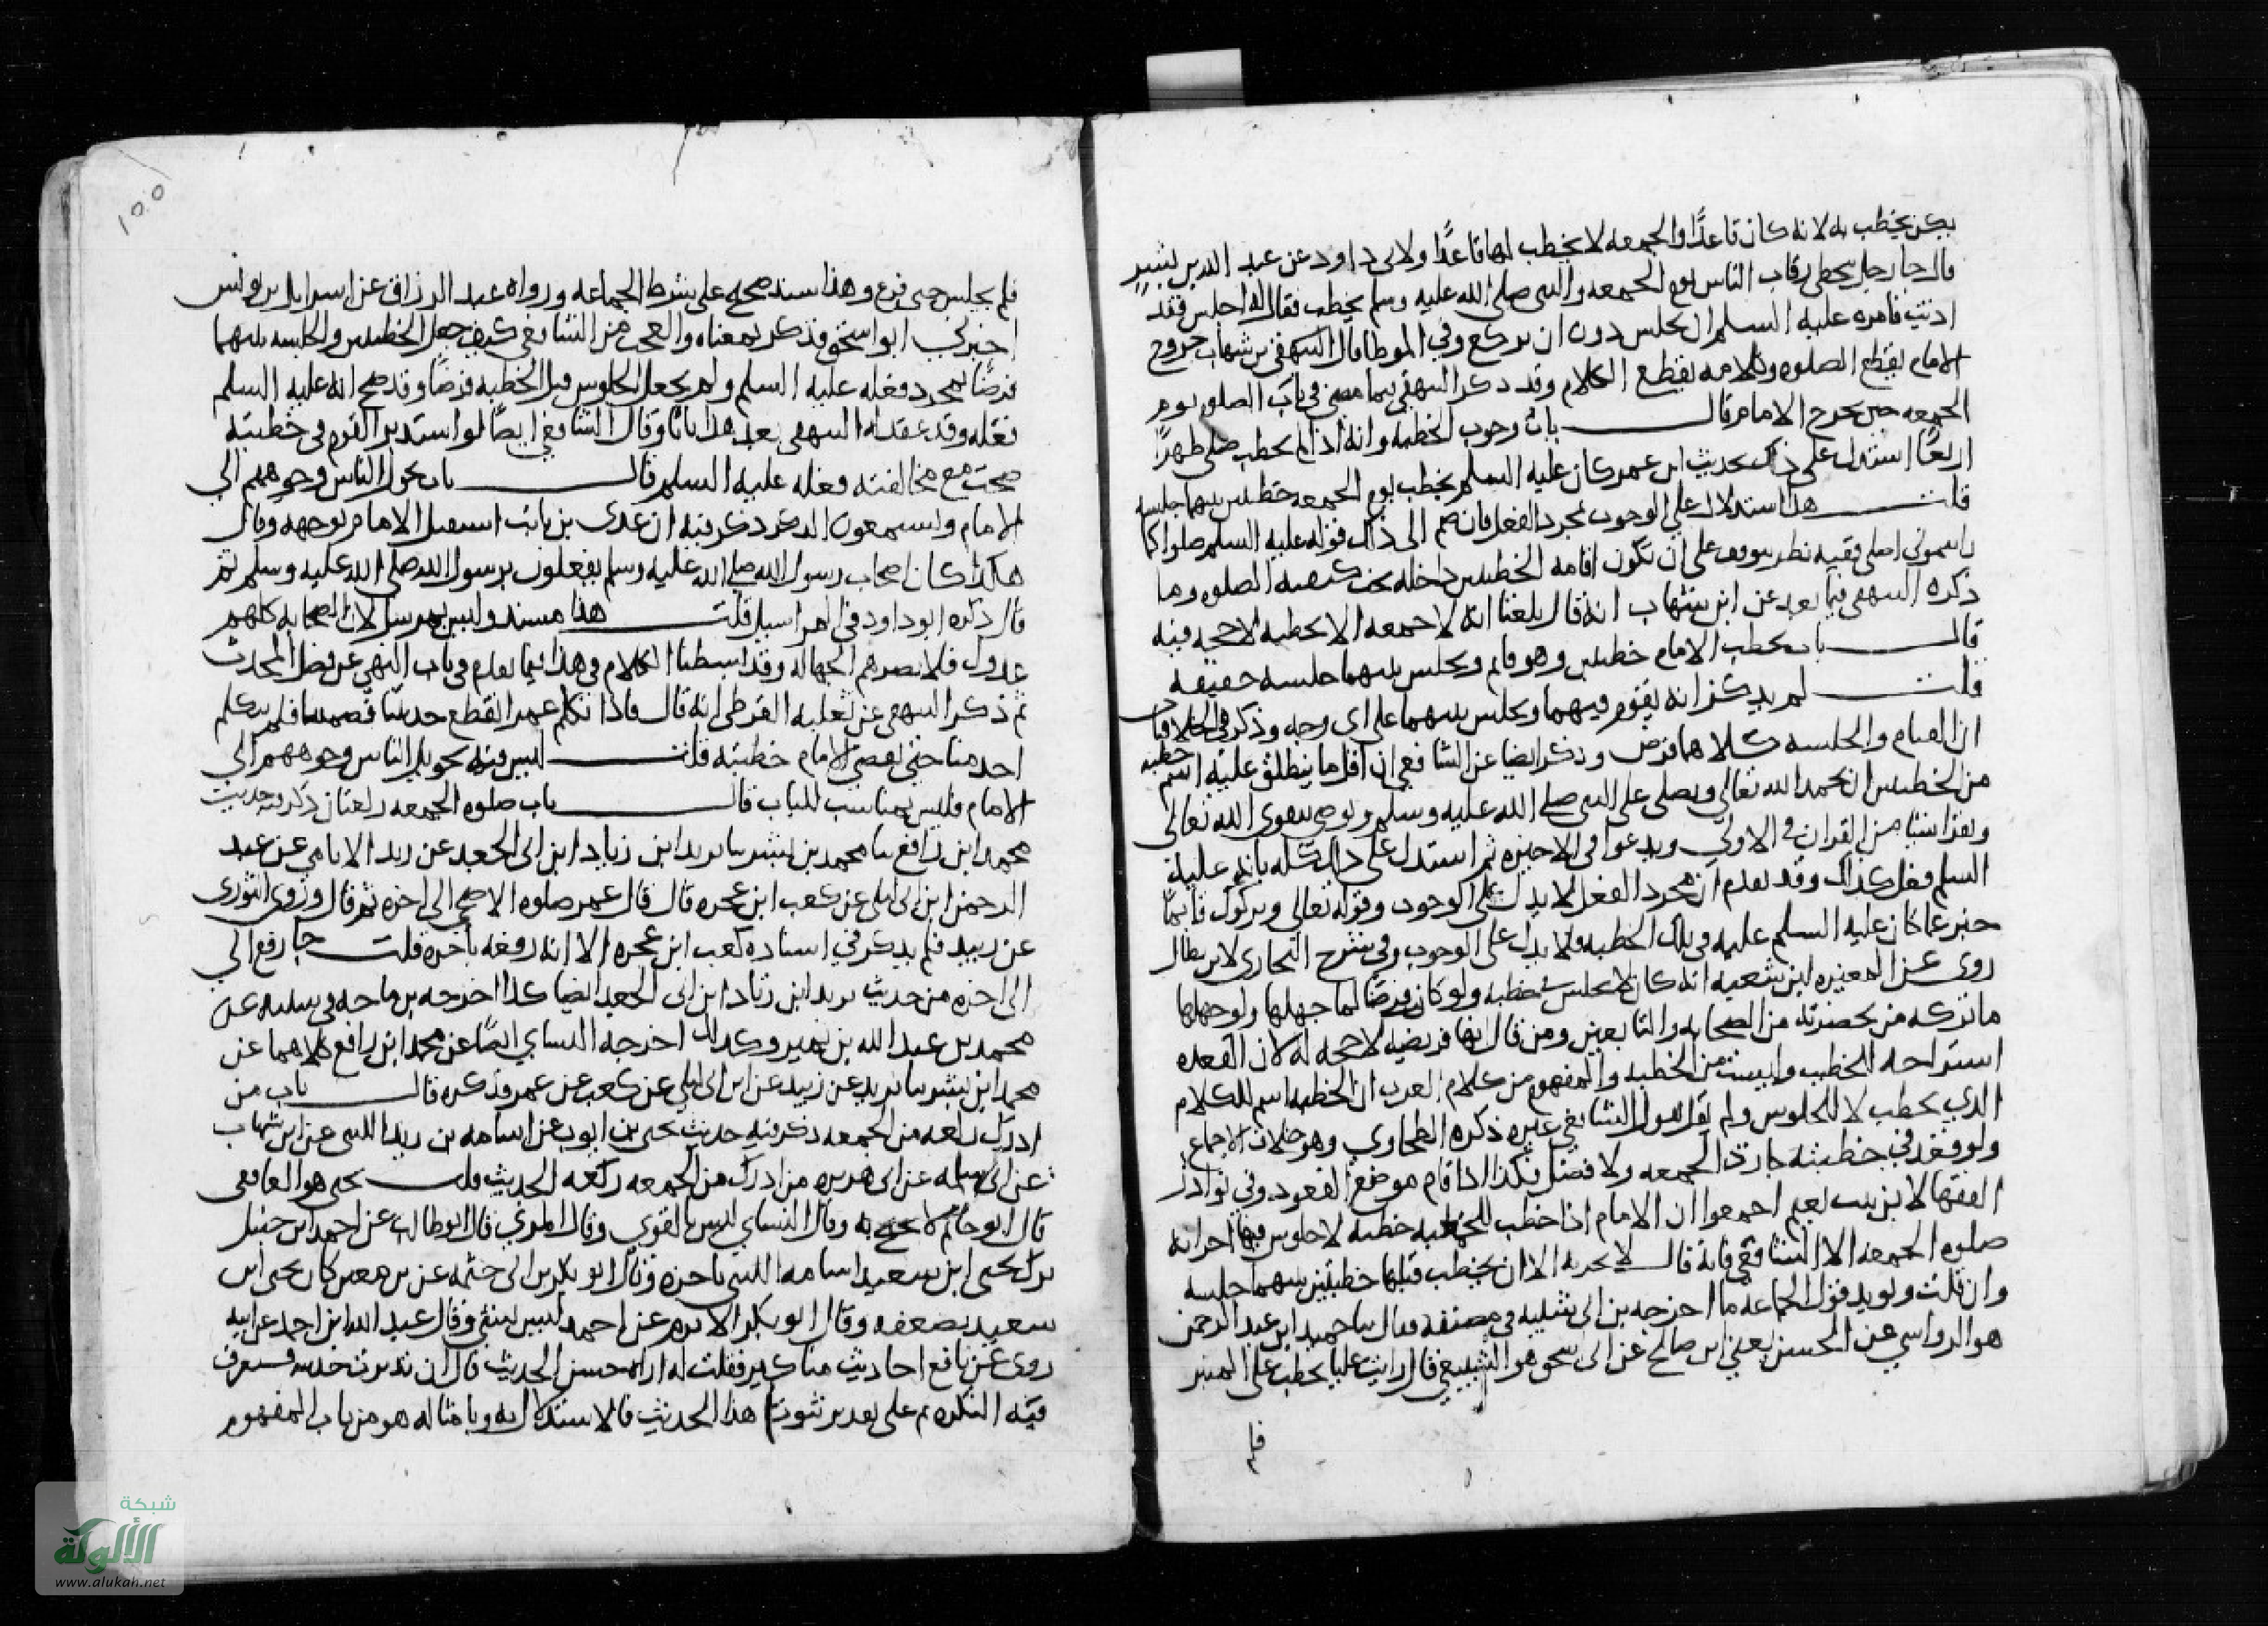 يكن يخطب به لانه كان قاعدًا والجمعه لا يخطب لها قاعدًا ولابى داود عن عبد الله بن بسر
قال جا رجل يتخطى رقاب الناس يوم الجمعه والنبى صلى الله عليه وسلم يخطب فقال له اجلس فقد
اذيت فامره عليه السلم ان يجلس دون ان يركع وفي الموطا قال ابن شهاب خروج
الامام يقطع الصلوه وكلامه يقطع الكلام وقد ذكر البيهقى فيما مضى في باب الصلوه يوم
الجمعه حين يخرج الامام قال باب وجوب الخطبه وانه اذا لم يخطب صلى ظهرًا
اربعًا استدل على ذلك بحديث ابن عمر كان عليه السلم يخطب يوم الجمعه خطبتين بينهما جلسه
قلت هذا استدلال على الوجوب بمجرد الفعل فان ضم الى ذلك قوله عليه السلم صلوا كما
رايتمونى اصلى ففيه نظر يتوقف على ان تكون اقامه الخطبتين داخله تحت كيفيه الصلوه وما
ذكره البيهقى فيما بعد عن ابن شهاب انه قال بلغنا انه لا جمعه الا بخطبه لا حجه فيه
قال باب يخطب الامام خطبتين وهو قايم ويجلس بينهما جلسه خفيفه
قلت لم يذكر انه يقوم فيهما ويجلس بينهما على اى وجه وذكر في الخلافيات
ان القيام والجلسه كلاهما فرض وذكر ايضا عن الشافعي ان اقل ما ينطلق عليه اسم خطبه
من الخطبتين ان يحمد الله تعالى ويصلى على النبى صلى الله عليه وسلم ويوصى بتقوى الله تعالى
ويقرا شيًا من القران في الاولى ويدعوا في الاخيره ثم استدل على ذلك كله بانه عليه
السلم فعل كذلك وقد تقدم ان مجرد الفعل لا يدل على الوجوب وقوله تعالى وتركوك قايمًا
خبر عما كان عليه السلم عليه في تلك الخطبه ولا يدل على الوجوب وفي شرح البخارى لابن بطال
روى عن المغيره ابن شعبه انه كان لا يجلس في خطبه ولو كان فرضًا لما جهلها ولو جهلها
ما تركه من بحضرته من الصحابه والتابعين ومن قال انها فريضه لا حجه له لان القعده
استراحه للخطيب وليست من الخطبه والمفهوم من كلام العرب ان الخطبه اسم للكلام
الذي يخطب لا للجلوس ولم يقل بقول الشافعي غيره ذكره الطحاوي وهو خلاف الاجماع
ولو قعد في خطبته جازت الجمعه ولا فضل فكذا اذا قام موضع القعود وفي نوادر
الفقها لابن بنت نعيم اجمعوا ان الامام اذا خطب للجمعه خطبه لا جلوس فيها اجزاته
صلوه الجمعه الا الشافعي فانه قال لا يجزيه الا ان يخطب قبلها خطبتين بينهما جلسه
وان قلت ويويد قول الجماعه ما اخرجه ابن ابى شيبه في مصنفه فقال ثنا حميد ابن عبد الرحمن
هو الرواسي عن الحسن يعني ابن صالح عن ابى اسحق هو السبيعي قال رايت عليا يخطب على المنبر
فلم
فلم يجلس حتى فرغ وهذا سند صحيح على شرط الجماعه ورواه عبد الرزاق عن اسرايل بن يونس
اخبرنى ابو اسحق فذكر بمعناه والعجب من الشافعي كيف جعل الخطبتين والجلسه بينهما
فرضًا بمجرد فعله عليه السلم ولم يجعل الجلوس قبل الخطبه فرضًا وقد صح انه عليه السلم
فعله وقد عقد له البيهقى بعد هذا بابًا وقال الشافعي ايضًا لو استدبر القوم في خطبته
صحت مع مخالفته فعله عليه السلم قال باب يحول الناس وجوههم الى
الامام ويستمعون الذكر ذكر فيه ان عدى بن ثابت استقبل الامام بوجهه وقال
هكذا كان اصحاب رسول الله صلى الله عليه وسلم يفعلون برسول الله صلى الله عليه وسلم ثم
قال ذكره ابو داود في المراسيل قلت هذا مسند وليس بمرسل لان الصحابه كلهم
عدول فلا يضرهم الجهاله وقد بسطنا الكلام في هذا فيما تقدم في باب النهى عن فضل المحدث
ثم ذكر البيهقى عن ثعلبه القرظى انه قال فاذا تكلم عمر انقطع حديثنا فصمتنا فلم يتكلم
احد منا حتى يقضى الامام خطبته قلت ليس فيه تحويل الناس وجوههم الى
الامام فليس بمناسب للباب قال باب صلوه الجمعه ركعتان ذكر فيه حديث
محمد ابن رافع ثنا محمد بن بشر ثنا يزيد ابن زياد ابن ابى الجعد عن زبيد الايامى عن عبد
الرحمن ابن ابى ليلى عن كعب ابن عجره قال قال عمر صلوه الاضحى الى اخره ثم قال وروى الثورى
عن زبيد فلم يذكر في اسناده كعب ابن عجره الا انه رفعه باخره قلت جا رفع الى
الى اخره من حديث يزيد ابن زياد ابن ابى الجعد ايضا كذا اخرجه بن ماجه في سننه عن
محمد بن عبد الله بن نمير وكذلك اخرجه النساي ايضًا عن محمد ابن رافع كلاهما عن
محمد ابن بشر ثنا يزيد عن زبيد عن ابن ابى ليلى عن كعب عن عمر فذكره قال باب من
ادرك ركعه من الجمعه ذكر فيه حديث يحيى بن ايوب عن اسامه بن زيد الليثى عن ابن شهاب
عن ابى سلمه عن ابى هريره من ادرك من الجمعه ركعه الحديث قلت يحيى هو الغافقى
قال ابو حاتم لا يحتج به وقال النساي ليس بالقوي وقال ابو طالب عن احمد ابن حنبل
ترك يحيى ابن سعيد اسامه الليثى باخره وقال ابو بكر بن ابى خيثمه عن بن معين كان يحيى ابن
سعيد يضعفه وقال ابو بكر الاثرم عن احمد ليس بشى وقال عبد الله ابن احمد عن ابيه
روى عن نافع احاديث مناكير فقلت له اراه حسن الحديث قال ان تدبرت حديثه فستعرف
فيه النكره ثم على تقدير ثبوت هذا الحديث فالاستدلال به وبامثاله هو من باب المفهوم
شبكة
الألوكة
www.alukah.net